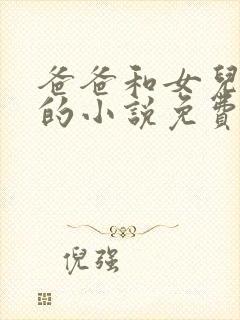 爸爸和女兒
的小說免費
倪强